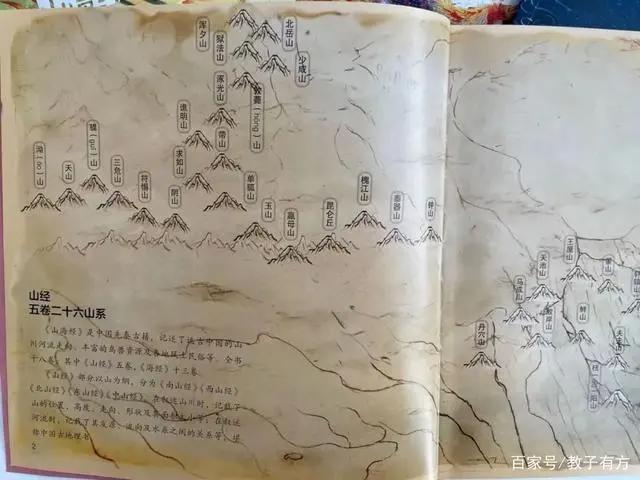 浑夕山
北岳山
狱法山
少咸山
涿光山
敦薨(hōng)山
谯明山
带山
求如山
騩(guī)山
三危山
天山
符惕山
阴山
单狐山
玉山
嬴母山
昆仑丘
槐江山
泰器山
钟山
王屋山
天池山
丹穴山
山经
五卷二十六山系
《山海经》是中国先秦古籍，记述了远古中国的山
川河流走向、丰富的鸟兽资源及各地风土民俗等，全书
十八卷，其中《山经》五卷，《海经》十三卷。
《山经》部分以山为纲，分为《南山经》《西山经》
《北山经》《东山经》《中山经》，在叙述山川时，记载了
山的位置、高度、走向、形状及
等；在叙述
河流时，记载了其发源、流向及水系之间的关系等，堪
称中国古地理书
2
百家号/教子有方